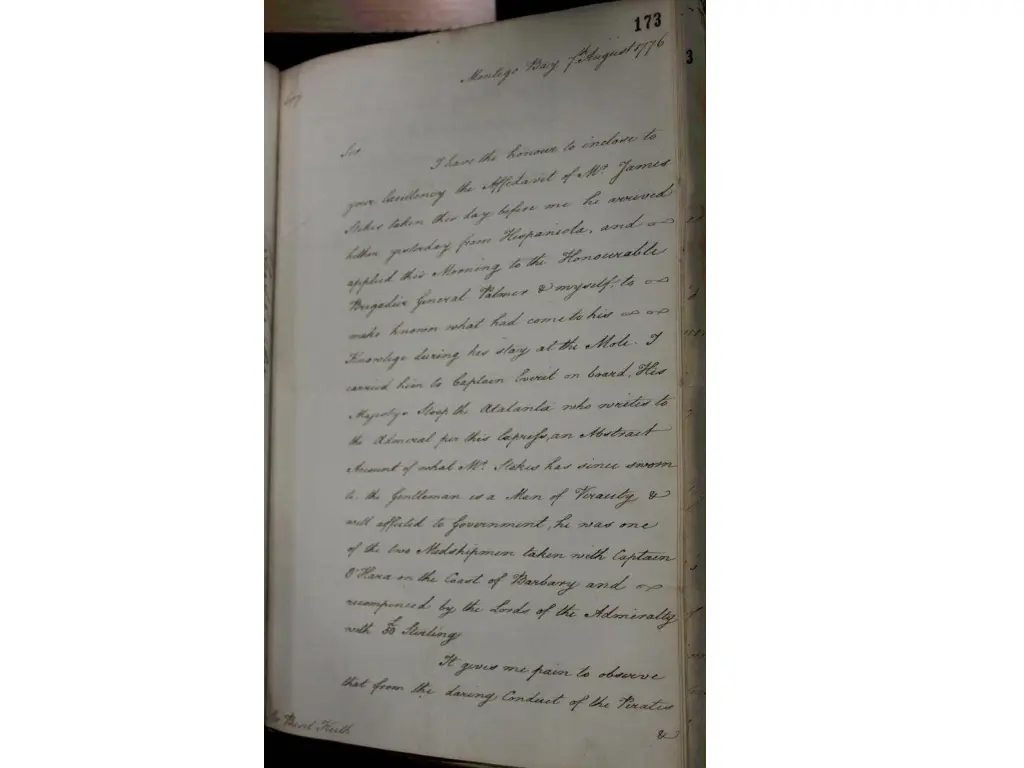 173
Montego Bay 7th August 1776
Sir
I have the honour to inclose to
your Excellency the Affidavit of Mr. James
Stokes taken this day before me he arrived
hither yesterday from Hispaniola, and
applied this Morning to the Honourable
Brigadier General Palmer & myself to
make known what had come to his
Knowlege during his stay at the Mole. I
carried him to Captain Everit on board, His
Majestys Sloop the Atalanta who writes to
the Admiral per this Express, an Abstract
Account of what Mr. Stokes has since sworn
to. the Gentleman is a Man of Veracity &
well affected to Government, he was one
of the two Medshipmen taken with Captain
O'Hara on the Coast of Barbary and
recompenced by the Lords of the Admiralty
with £50 Sterling
It gives me pain to observe
that from the daring Conduct of the Pirates
&
Sir Basil Keith
3